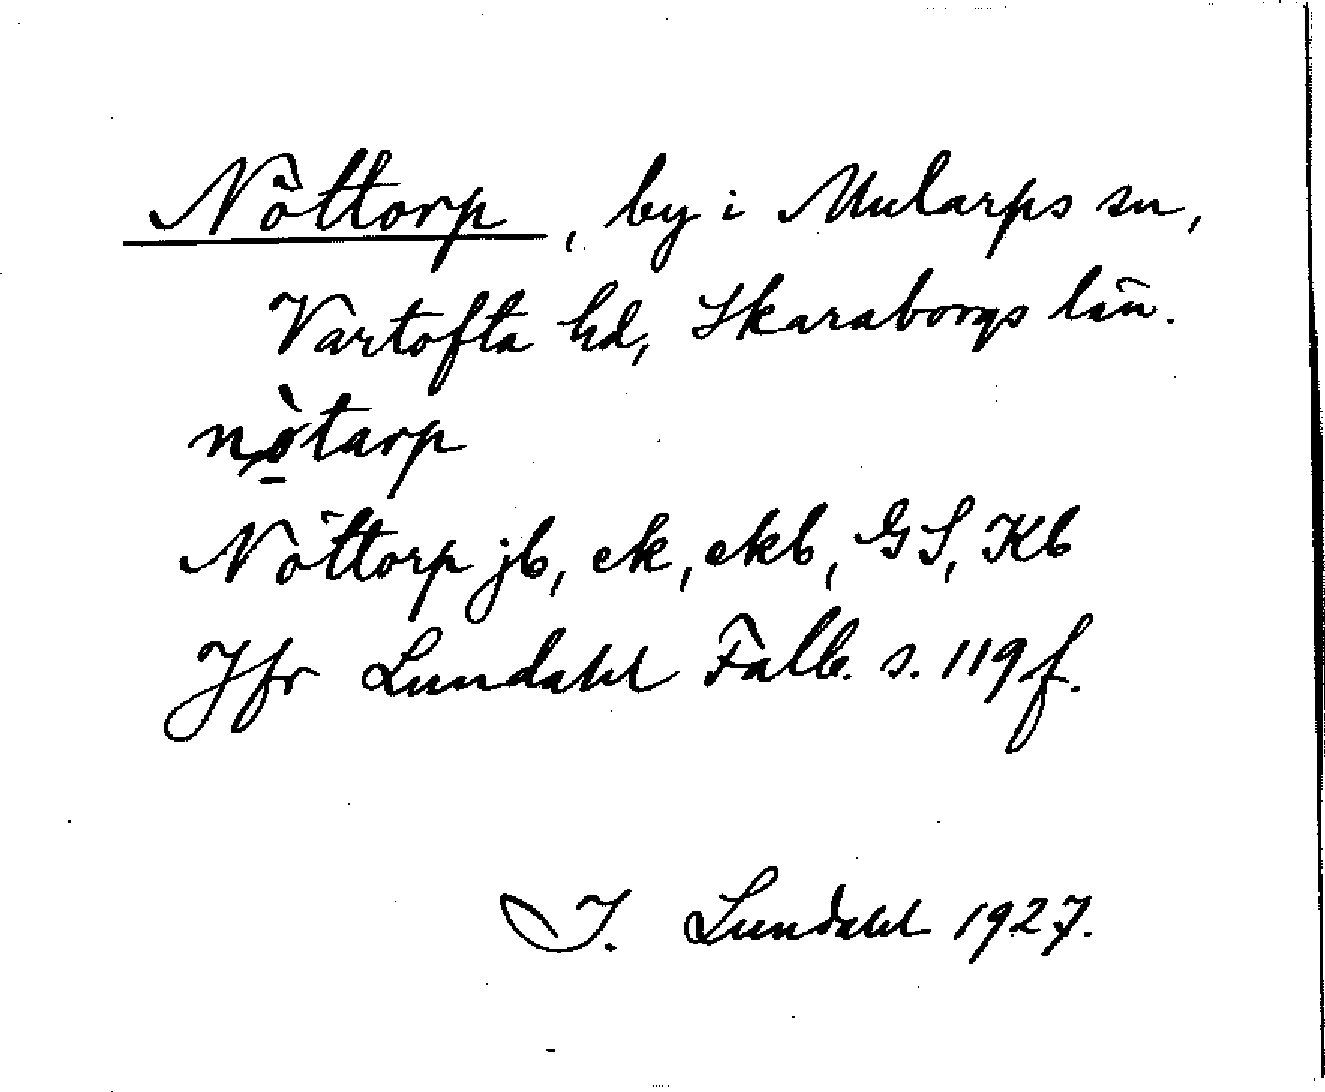 Nöttorp, by i Mularps sn,
Vartofta hd, Skaraborgs län.
nø̀tarp
Nöttorp jb, ek, ekb, GS, Kb
Jfr Lundahl Falb. s. 119 f.
I. Lundahl 1927.